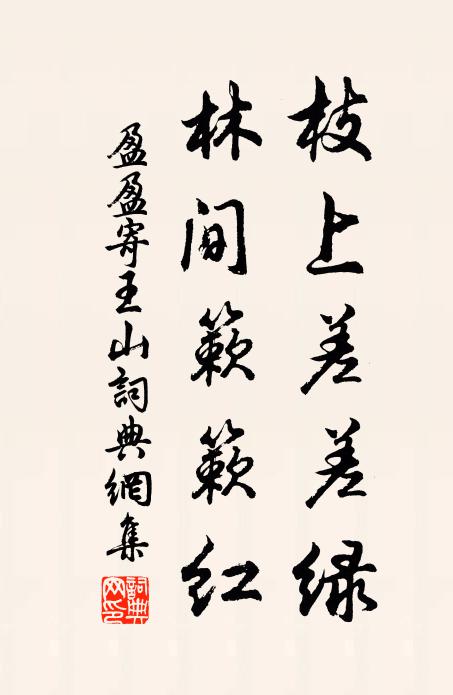 枝上差差绿
林间簌簌红
盈盈寄王山詞典網集
詞典网印